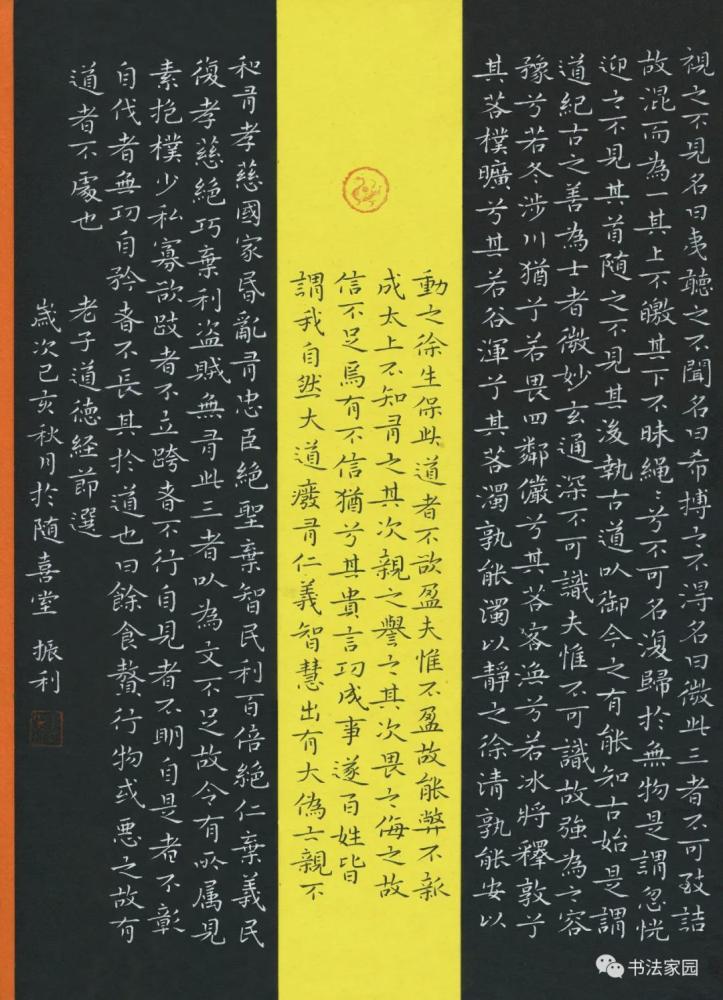 視之不見名曰夷聽之不聞名曰希搏之不得名曰微此三者不可致詰
故混而為一其上不皦其下不昧繩〻兮不可名復歸於無物是謂忽恍
迎之不見其首隨之不見其後執古道以御今之有能知古始是謂
道紀古之善為士者微妙玄通深不可識夫惟不可識故強為之容
豫兮若冬涉川猶兮若畏四鄰儼兮其若客渙兮若冰將釋敦兮
其若樸曠兮其若谷渾兮其若濁孰能濁以靜之徐清孰能安以
動之徐生保此道者不欲盈夫惟不盈故能弊不新
成太上不知有之其次親之譽之其次畏之侮之故
信不足焉有不信猶兮其貴言功成事遂百姓皆
謂我自然大道廢有仁義智慧出有大偽六親不
和有孝慈國家昏亂有忠臣絕聖棄智民利百倍絕仁棄義民
復孝慈絕巧棄利盜賊無有此三者以為文不足故令有所属見
素抱樸少私寡欲跂者不立跨者不行自見者不明自是者不彰
自伐者無功自矜者不長其於道也曰餘食贅行物或惡之故有
道者不處也
老子道德経節選
歲次己亥秋月於随喜堂 振利
书法家园